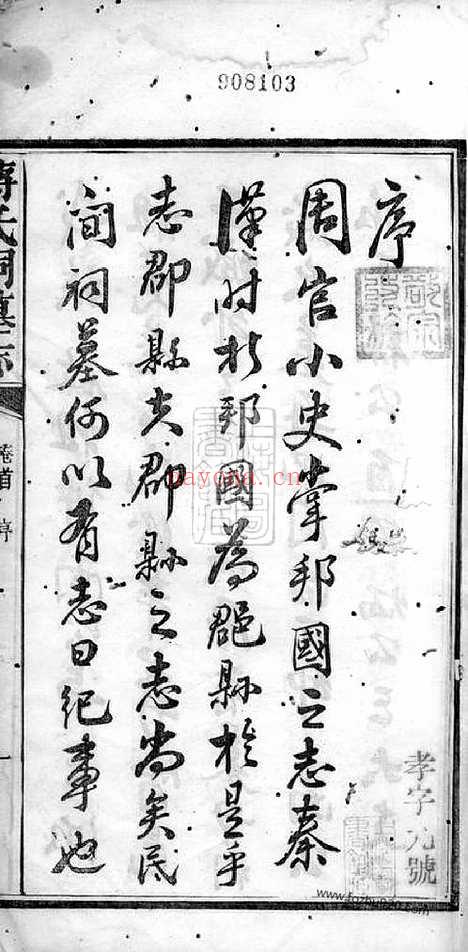 908103
序
周官小史掌邦國之志秦
漢时析邦國為郡縣於是乎
志郡縣夫郡縣之志尚矣民
间祠墓何以有志曰纪事也
孝字九號
氏祠墓志
卷首 序
nayona.cn